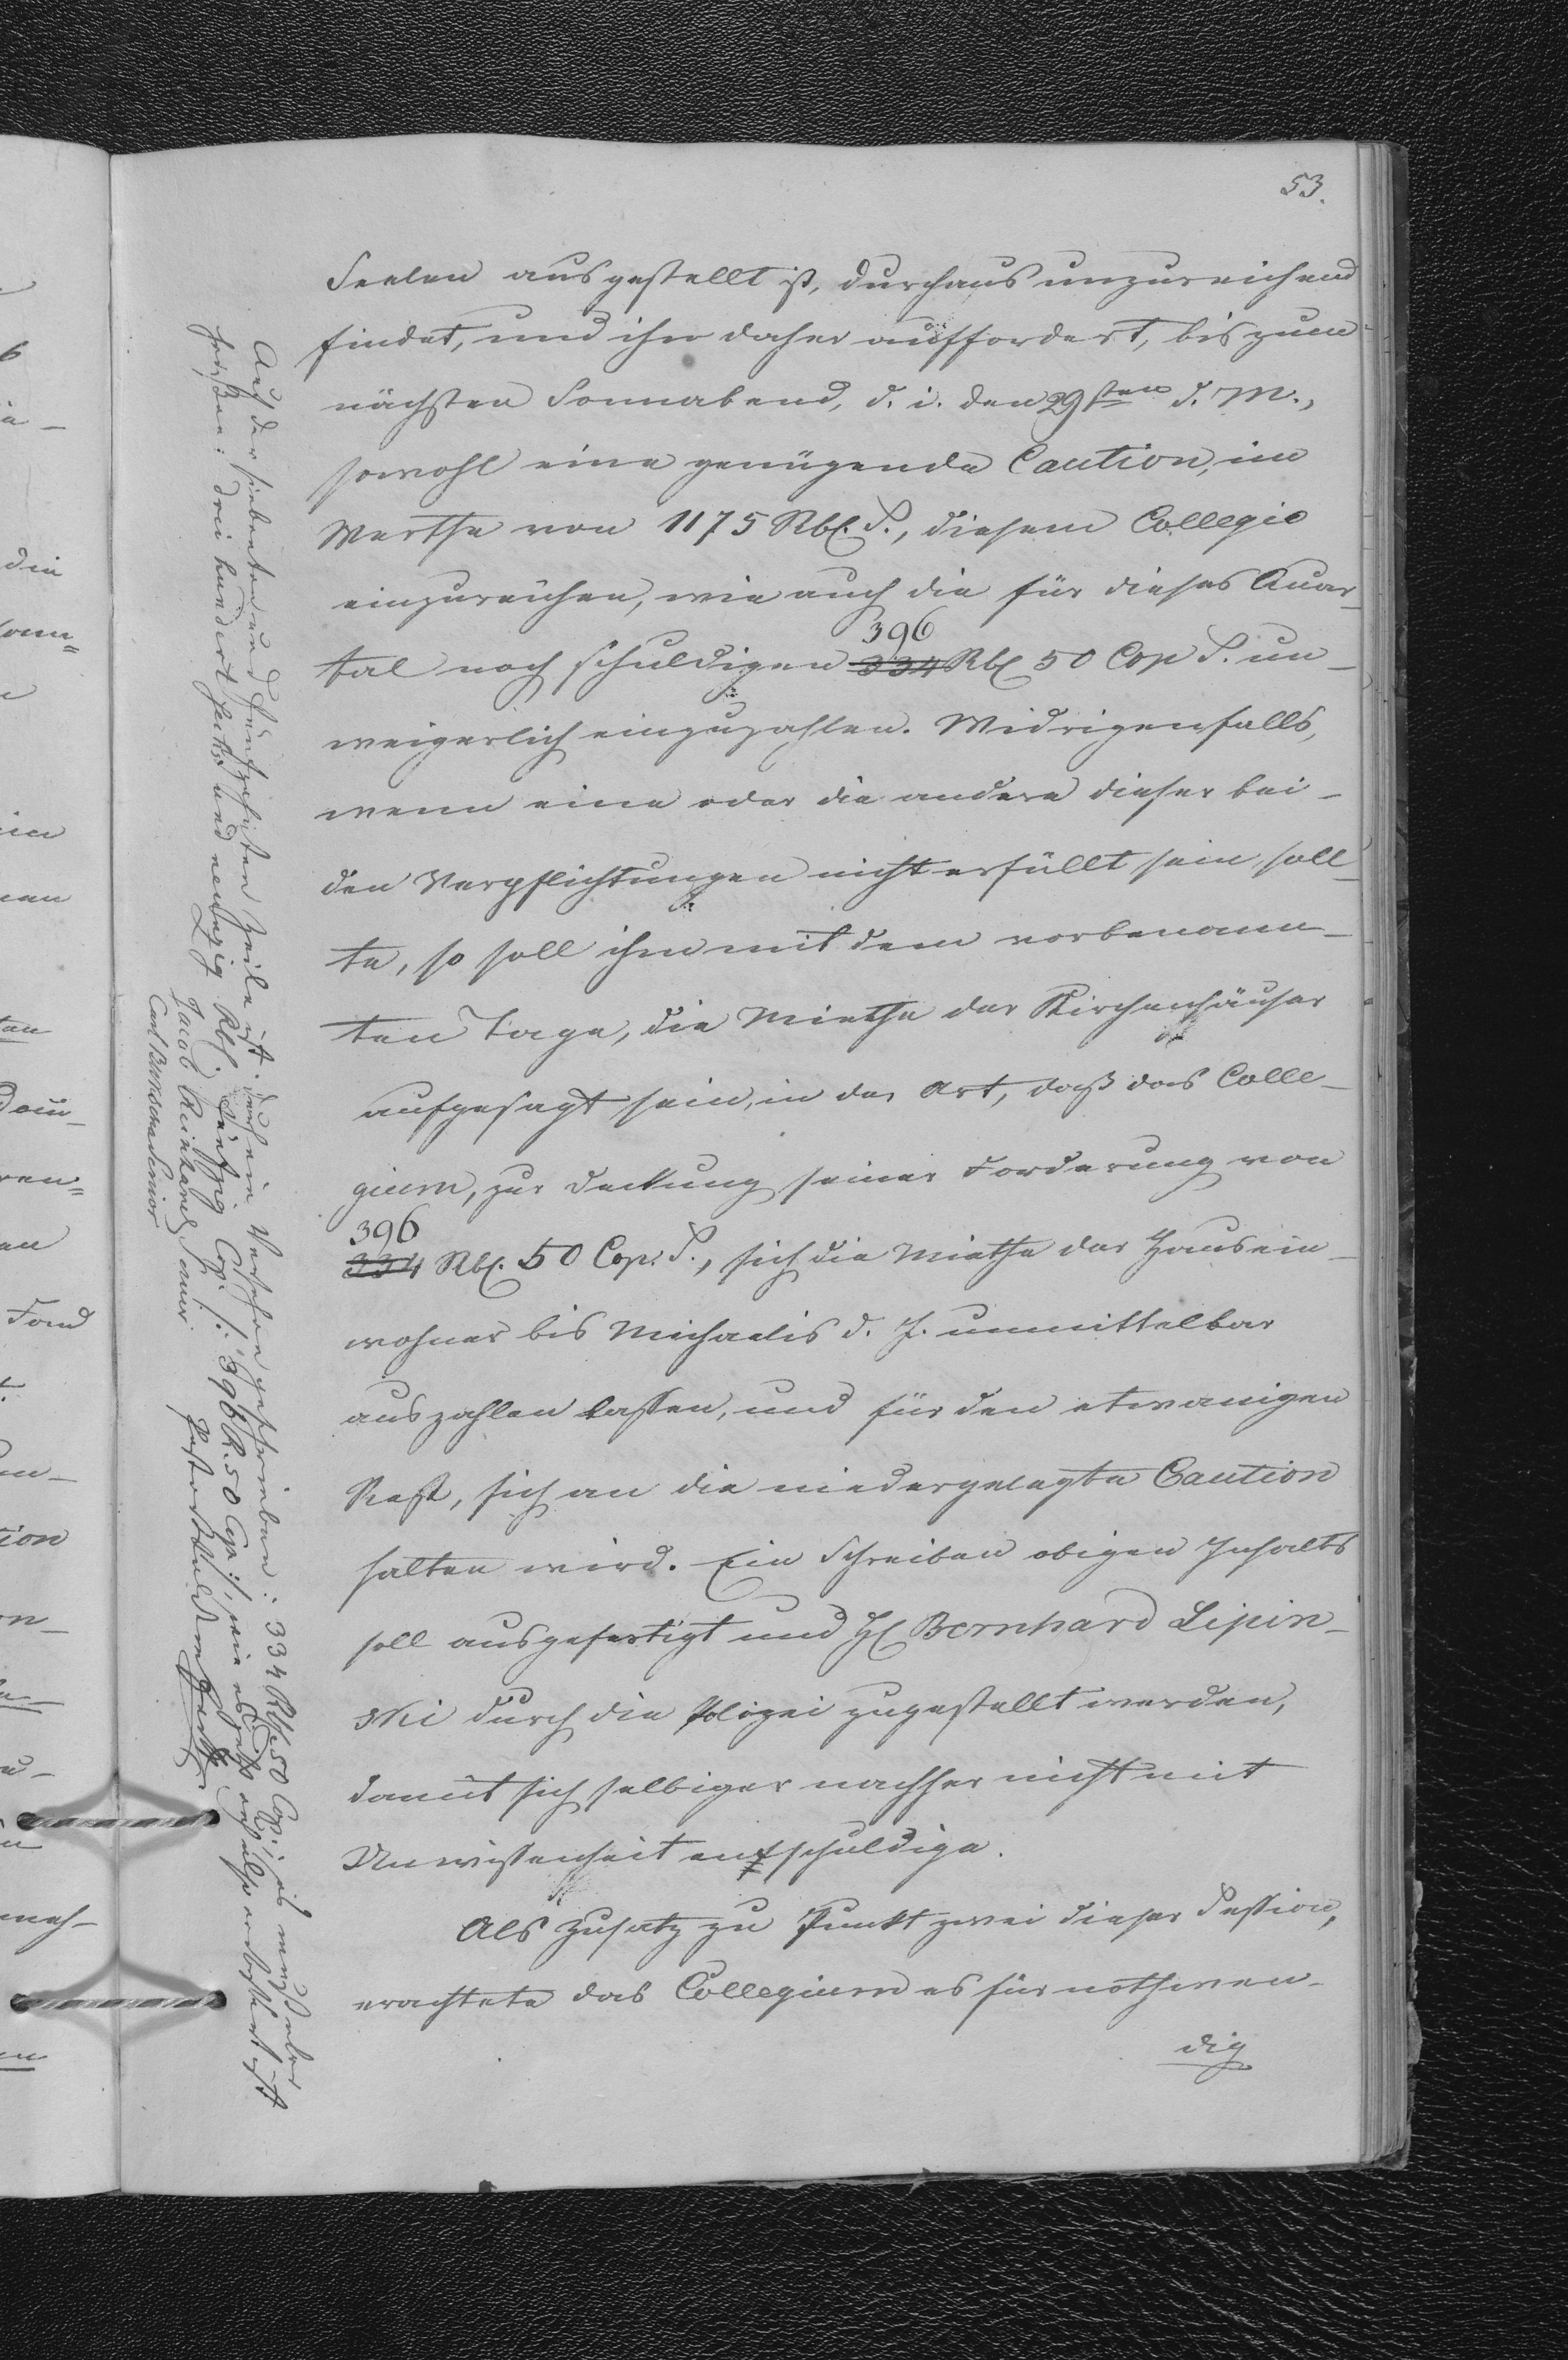 53.
Seelen ausgestellt ist, durchaus unzureichend
findet, und ihn daher auffordert, bis zum
nächsten Sonnabend, d. i. den 29sten d. M.,
sowohl eine genügende Caution, im
Werthe von 1175 Rbl. S., diesem Collegio
einzureichen, wie auch die für dieses Quar-
396
tal noch schuldigen 334 Rbl 50 Cop S. un-
weigerlich einzuzahlen. Widrigenfalls,
wenn eine oder die andere dieser bei-
den Verpflichtungen nicht erfüllt sein soll-
te, so soll ihm mit dem vorbenann-
ten Tage, die Miethe der Kirchenhäuser
aufgesagt sein, in der Art, daß das Colle-
gium, zur Deckung seiner Forderung von
396
334 Rbl. 50 Cop. S., sich die Miethe der Hausein-
wohner bis Michaelis d. J. unmittelbar
auszahlen lassen, und für den etwanigen
Rest, sich an die niedergelegte Caution
halten wird. Ein Schreiben obigen Inhalts
soll ausgefertigt und H. Bernhard Lipin-
ski durch die Polizei zugestellt werden,
damit sich selbiger nachher nicht mit
Unwissenheit entschuldige.
Als Zusatz zu Punkt zwei dieser Session,
erachtete das Collegium es für nothwen-
dig
Auf der siebenten und fünfzehnten Zeile ist durch ein Versehen geschrieben: 334 Rbl. 50 Cop.; es muß aber
heißen: drei hundert sechs und neunzig Rbl. fünfzig Cop. /: 396 R. 50 Cop :/, wie es
Jacob Reinhard Sauer.
Carl senior
Pastor